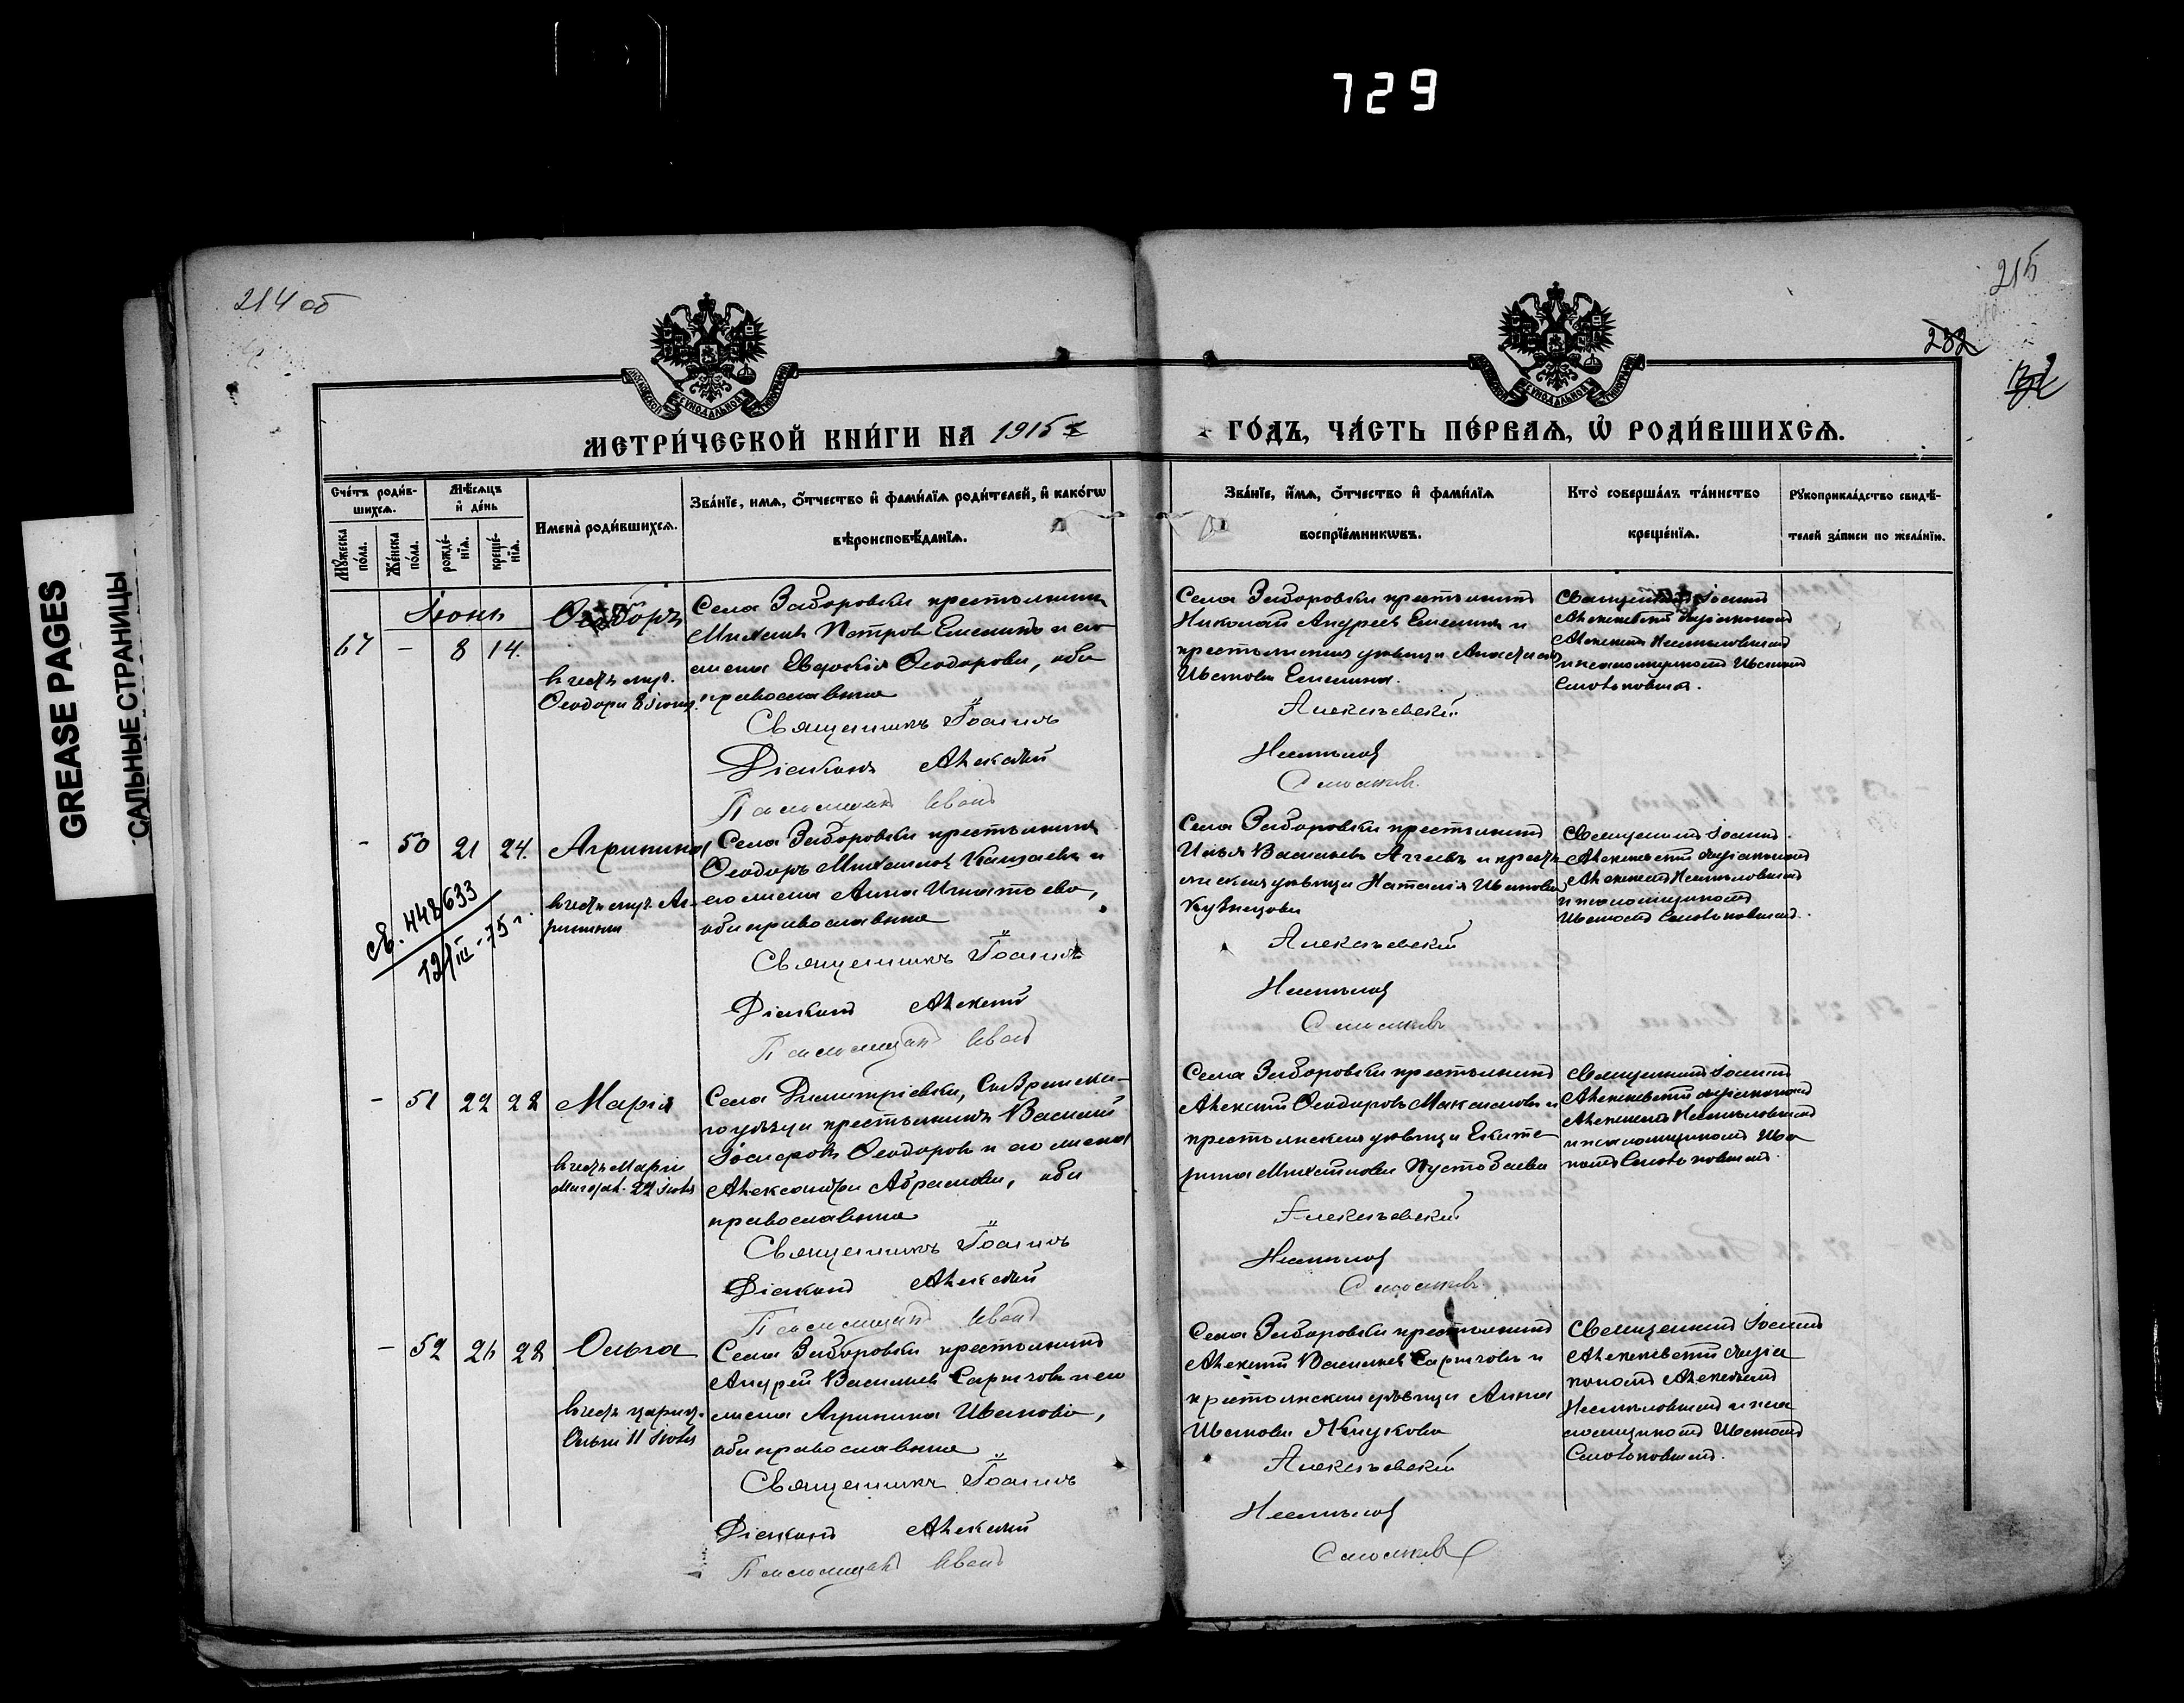 729
GREASE PAGES
САЛЬНЫЕ СТРАНИЦЫ
214 об
215
232
МЕТРИ́ЧЕСКОЙ КНИ́ГИ НА 1915
ГО́ДЪ, ЧА́СТЬ ПЕ́РВАѦ, Ѡ РОДИ́ВШИХСѦ.
Сче́тъ роди́в-
шихсѧ.
Мꙋ́жеска по́ла.
Же́нска по́ла.
Мѣ́сѧцъ
и҆ де́нь
рожде́-
нїѧ.
креще́-
нїѧ.
Имена̀ роди́вшихсѧ.
Зва́нїе, имѧ, ѻ҆́тчество и҆ фами́лїѧ роди́телей, и҆ како́гѡ
вѣроисповѣ́данїѧ.
Зва́нїе, и҆́мѧ, ѻ҆́тчество и҆ фами́лїѧ
воспрїе́мникѡвъ.
Кто̀ соверша́лъ та́инство
креще́нїѧ.
Рꙋкоприкла́дство свидѣ́-
телей за́писи по жела́нїю.
Іюнь
67 - 8 14.
въ честь муч.
Ѳеодора 8 іюня.
Села Заборовки крестьянинъ
Михаилъ Петровъ Емелинъ и его
жена Евдокія Ѳеодорова, оба
православные
Священникъ Іоаннъ
Діаконъ Алексій
Псаломщикъ Иванъ
Села Заборовки крестьянинъ
Николай Андреевъ Емелинъ и
крестьянская дѣвица Анастасія
Иванова Емелина.
Алексѣевскій
Священникъ Іоаннъ
Алексѣевскій съ діакономъ
и псаломщикомъ Иваномъ
- 50 21 24. Агрипина
въ честь муч. Аг-
рипины
Села Заборовки крестьянинъ
Ѳеодоръ Михаиловъ Канаевъ и
его жена Анна Игнатьева,
оба православные
Священникъ Іоаннъ
Діаконъ Алексій
Псаломщикъ Иванъ
Села Заборовки крестьянинъ
Илья Васильевъ Аггеевъ и кресть-
янская дѣвица Наталія Иванова
Кузнецова
Алексѣевскій
Священникъ Іоаннъ
Алексѣевскій съ діакономъ
и псаломщикомъ
св. 448633
12/III-75 г.
- 51 22 28 Марія
въ честь Маріи
Магдал. 22 іюля
Села Димитріевки, Сызранска-
го уѣзда крестьянинъ Василій
Іосифовъ Ѳеодоровъ и его жена
Александра Абрамова, оба
православные
Священникъ Іоаннъ
Діаконъ Алексій
Псаломщикъ Иванъ
Села Заборовки крестьянинъ
Алексій Ѳеодоровъ Максимовъ и
крестьянская дѣвица Екате-
рина Михаилова Пустобаева
Алексѣевскій
Священникъ Іоаннъ
Алексѣевскій съ діакономъ
и псаломщикомъ Ива-
- 52 26 28 Ольга
въ честь цариц.
Ольги 11 іюля
Села Заборовки крестьянинъ
Андрей Васильевъ Сарычовъ и его
жена Агрипина Иванова,
оба православные
Священникъ Іоаннъ
Діаконъ Алексій
Псаломщикъ Иванъ
Села Заборовки крестьянинъ
Алексій Васильевъ Сарычовъ и
крестьянская дѣвица Анна
Иванова Жмукова
Алексѣевскій
Священникъ Іоаннъ
Алексѣевскій съ діа-
кономъ Алексіемъ
и пса-
ломщикомъ Иваномъ